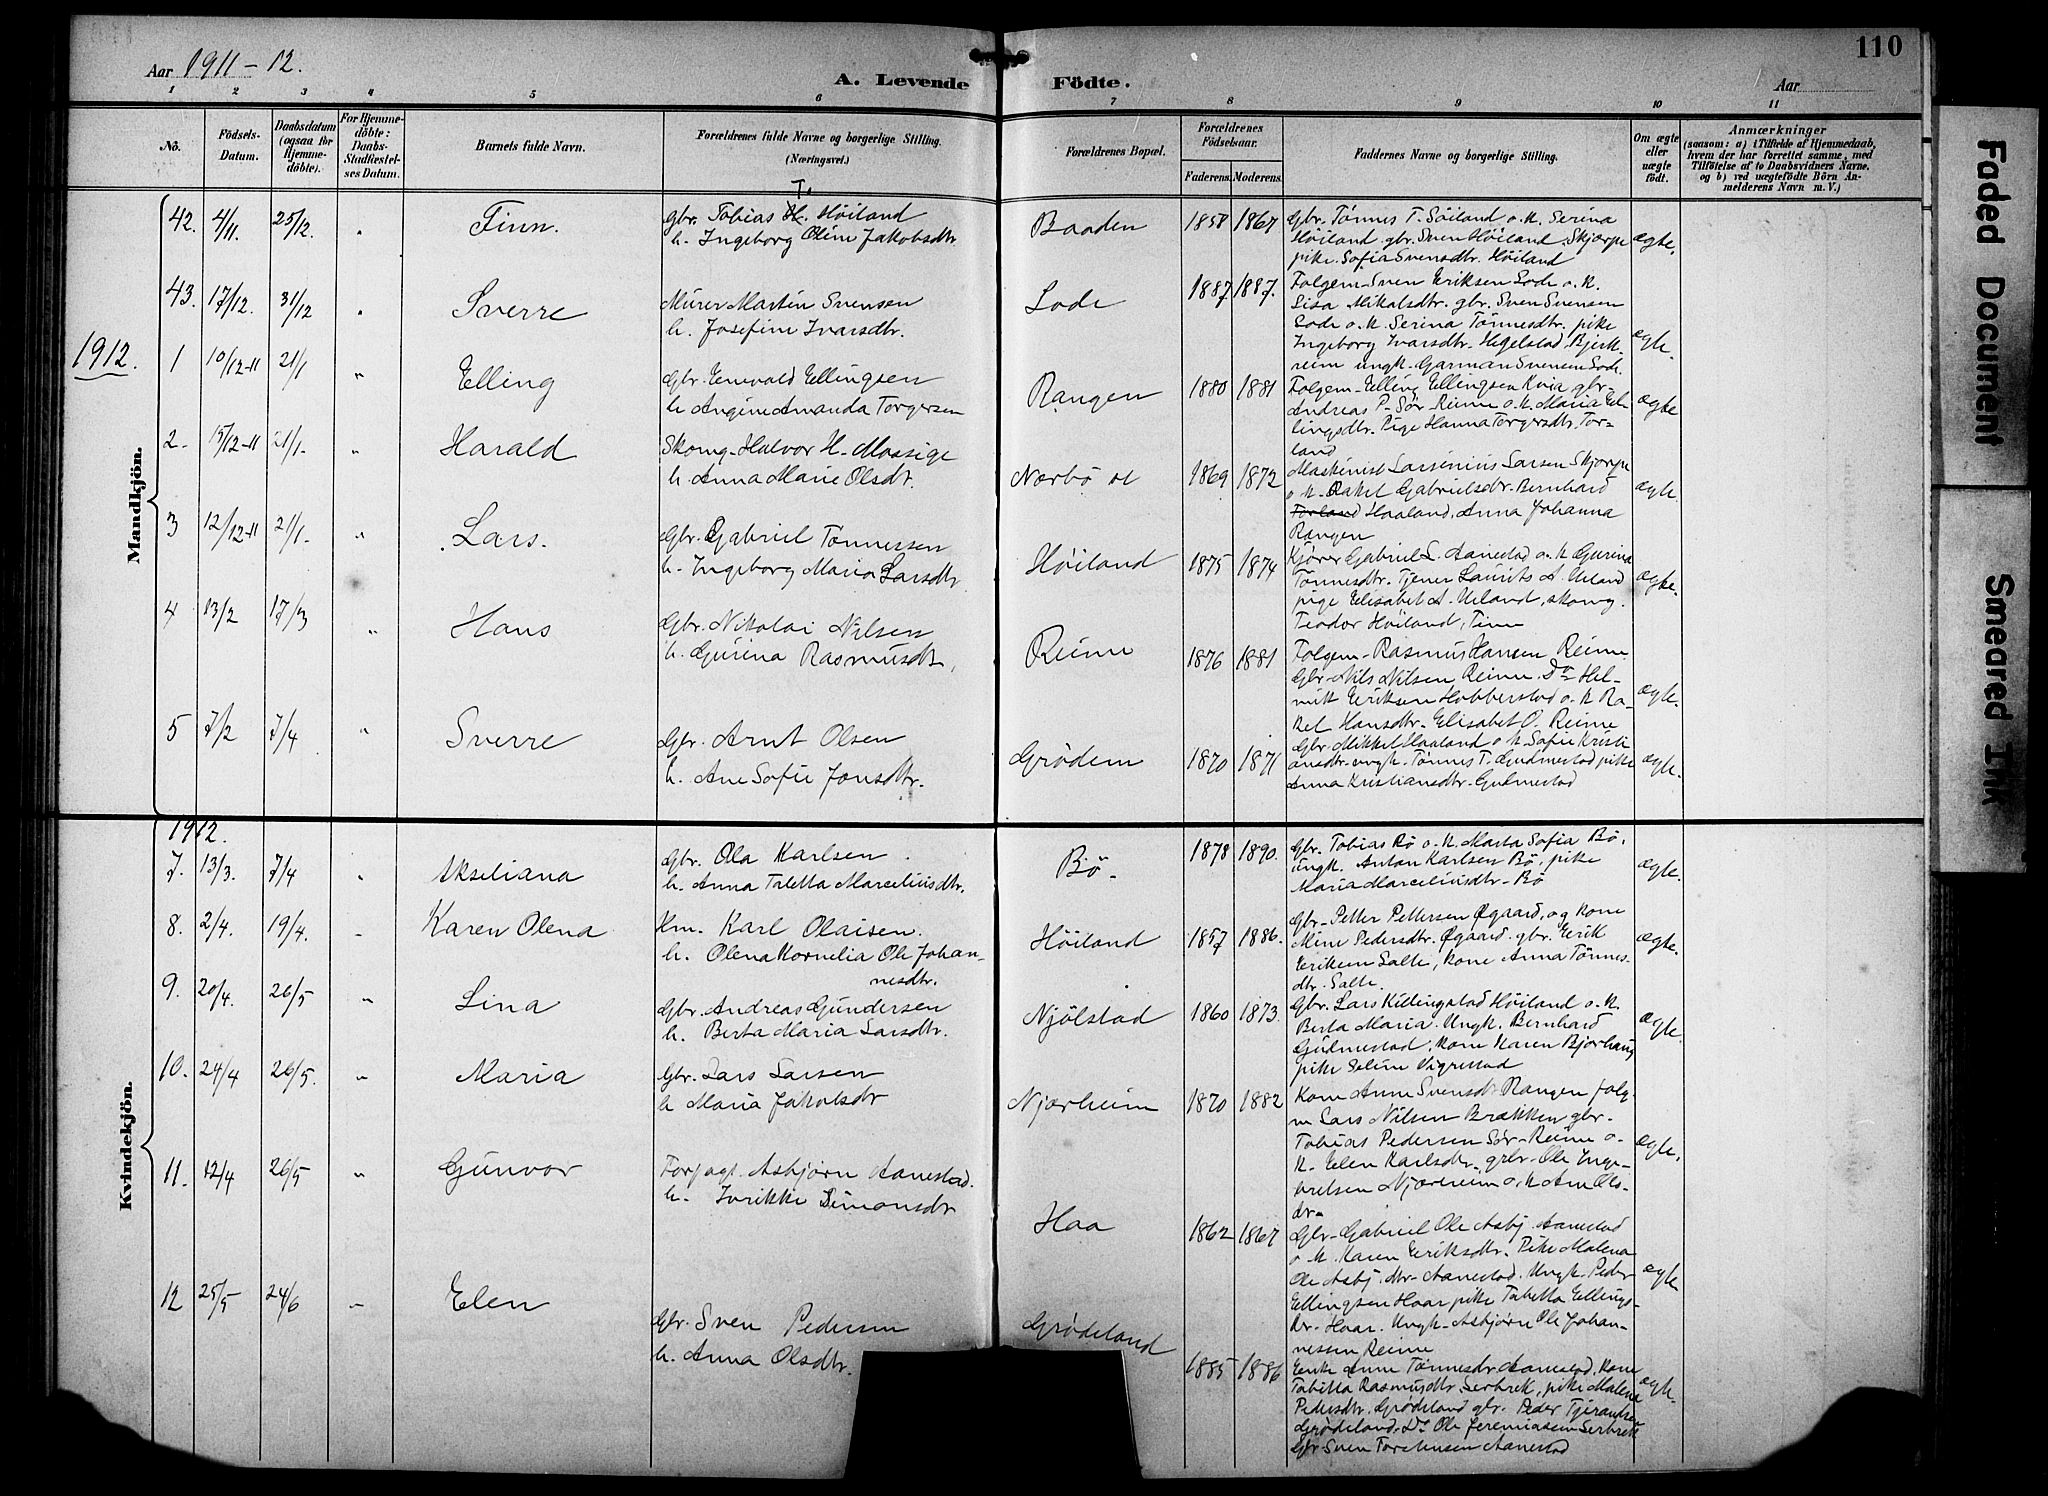 Aar 1911-12.
A. Levende Födte.
Aar
110
1 2 3 4 5 6 7 8 9 10 11
Nô.
Födsels-Datum.
Daabsdatum (ogsaa for Hjemme-döbte).
For Hjemme-döbte: Daabs-Stadfæstel-ses Datum.
Barnets fulde Navn.
Forældrenes fulde Navne og borgerlige Stilling. (Næringsvei.)
Forældrenes Bopæl.
Forældrenes Födselsaar.
Faderens. Moderens.
Faddernes Navne og borgerlige Stilling.
Om ægte eller uægte födt.
Anmærkninger
(saasom: a) i Tilfælde af Hjemmedaab, hvem der har forrettet samme, med Tilföielse af to Daabsvidners Navne, og b) ved uægtefödte Börn An-melderens Navn m. V.)
Mandkjön.
42. 4/11. 25/12. " Finn.
Gbr. Tobias T. Höiland
h. Ingeborg Oline Jakobsdtr
Baaden 1858 1867
Gbr. Tönnes T. Söiland o. k. Serina
Höiland gbr. Sven Höiland, Skjærpe
pike. Sofia Svensdtr. Höiland
ægte.
43. 17/12. 31/12 " Sverre
Murer Martin Svensen
h. Josefine Ivarsdtr.
Lode 1887 1887.
Folgem. Sven Eriksen Lode o. k.
Lisa Mikalsdtr. gbr. Sven Svensen
Lode o. k. Serina Tönnesdtr. pike
Ingeborg Ivarsdtr. Hegelstad, Bjerk-
reim ungk. Garman Svensen Lode.
ægte.
1912.
1 10/12-11 21/1 " Elling
Gbr. Enevald Ellingsen
h. Angine Amanda Torgersen
Rangen 1880 1881
Folgem. Elling Ellingsen Kvia gbr-
Andreas P. Sör-Reime o. k. Maria El-
lingsdtr. Pige Hanna Torgersdtr. Tor-
land
ægte
2. 15/12-11 21/1. " Harald
Skomg. Halvor H. Mossige
h. Anna Marie Olsdtr.
Nærbö st 1869 1872
Maskinist Larsinius Larsen Skjærpe
o. k. Rakel Gabrielsdtr. Bernhard
Torland Haaland, Anna Johanna
Rangen
ægte.
3 12/12-11 21/1. " Lars.
Gbr. Gabriel Tönnessen
h. Ingeborg Maria Larsdtr
Höiland 1875 1874
Kjörer Gabriel L. Aanestad o. k. Gurina
Tönnesdtr. Tjener Laurits A. Ueland
pige Elisabet A. Ueland, skomg.
Teodor Höiland, Time
ægte.
4 13/2 17/3 " Hans
Gbr. Nikolai Nilsen
h. Gurina Rasmusdtr.
Reime 1876 1881
Folgem. Rasmus Hansen Reime
Gbr. Nils Nilsen Reime. Do Hel-
mik Eriksen Hobberstad o. k. Ra-
kel Hansdtr. Elisabet O. Reime
ægte.
5 7/2 7/4 " Sverre
Gbr. Arnt Olsen
h. Ane Sofie Jonsdtr.
Grödem 1870 1871
Gbr. Mikkel Haaland o. k. Sofie Kristi
ansdtr. ungk. Tönnes T. Gudmestad pike
Anna Kristiansdtr. Gudmestad
ægte.
Kvindekjön.
1912.
7. 13/3. 7/4 " Akseliana
Gbr. Ola Karlsen
h. Anna Taletta Marceliusdtr.
Bö. 1878 1890.
Gbr. Tobias Bö o. k. Marta Sofia Bö,
ungk. Anton Karlsen Bö, pike
Maria Marceliusdtr. Bö
ægte.
8. 2/4. 19/4. - Karen Olena
Hm. Karl Olaisen.
h. Olena Kornelia Ole Johan-
nesdtr.
Höiland 1857 1886.
Gbr. Petter Pettersen Øgaard, og kone
Mine Pedersdtr. Øgaard. gbr. Eirik
Eriksen Salte, kone Anna Tönnes-
dtr. Salte.
ægte.
9. 20/4. 26/5 " Lina
Gbr. Andreas Gundersen
h. Berta Maria Larsdtr.
Njölstad 1860 1873.
Gbr. Lars Killingstad Höiland o. k.
Berta Maria. Ungk. Bernhard
Gudmestad, kone Karen Bjorhaug
pike Seline Vigrestad
ægte.
10. 24/4 26/5. " Maria
Gbr. Lars Larsen
h Maria Jakobsdtr
Njærheim 1870 1882
Kone Anne Svensdtr Rangen folg-
m Lars Nilsen Brækken gbr.
Tobias Pedersen Sör-Reime o-
k. Elen Karlsdtr. gbr. Ole Inge-
bretsen Njærheim o. k Ane Ols-
dr.
ægte.
11. 12/4 26/5 " Gunvor
Forpagt. Asbjörn Aanestad.
h. Inrikke Simonsdtr
Haa 1862 1867
Gbr. Gabriel Ole Asbj. Aanestad
o k. Karen Eriksdtr. Pike Malena
Ole Asbj. dtr. Aanestad. Ungk. Peder
Ellingsen Haar pike Tabetta Ellings-
dtr. Haar. Ungk. Asbjörn Ole Johan-
nessen Reime
ægte
12 25/5 24/6 " Elen
Gbr. Sven Pedersen
h. Anna Olsdtr.
Grödeland 1885 1886
Enke Anne Tönnesdtr Aanestad, kone
Tabitta Rasmusdtr. Serbrek, pike Malena
Pedersdtr. Grödeland gbr. Peder Tjerandsen
Grödeland. Do Ole Jeremiassen Serbrek
Gbr Sven Torstensen Aanestad
ægte.
Faded Document
Smeared Ink